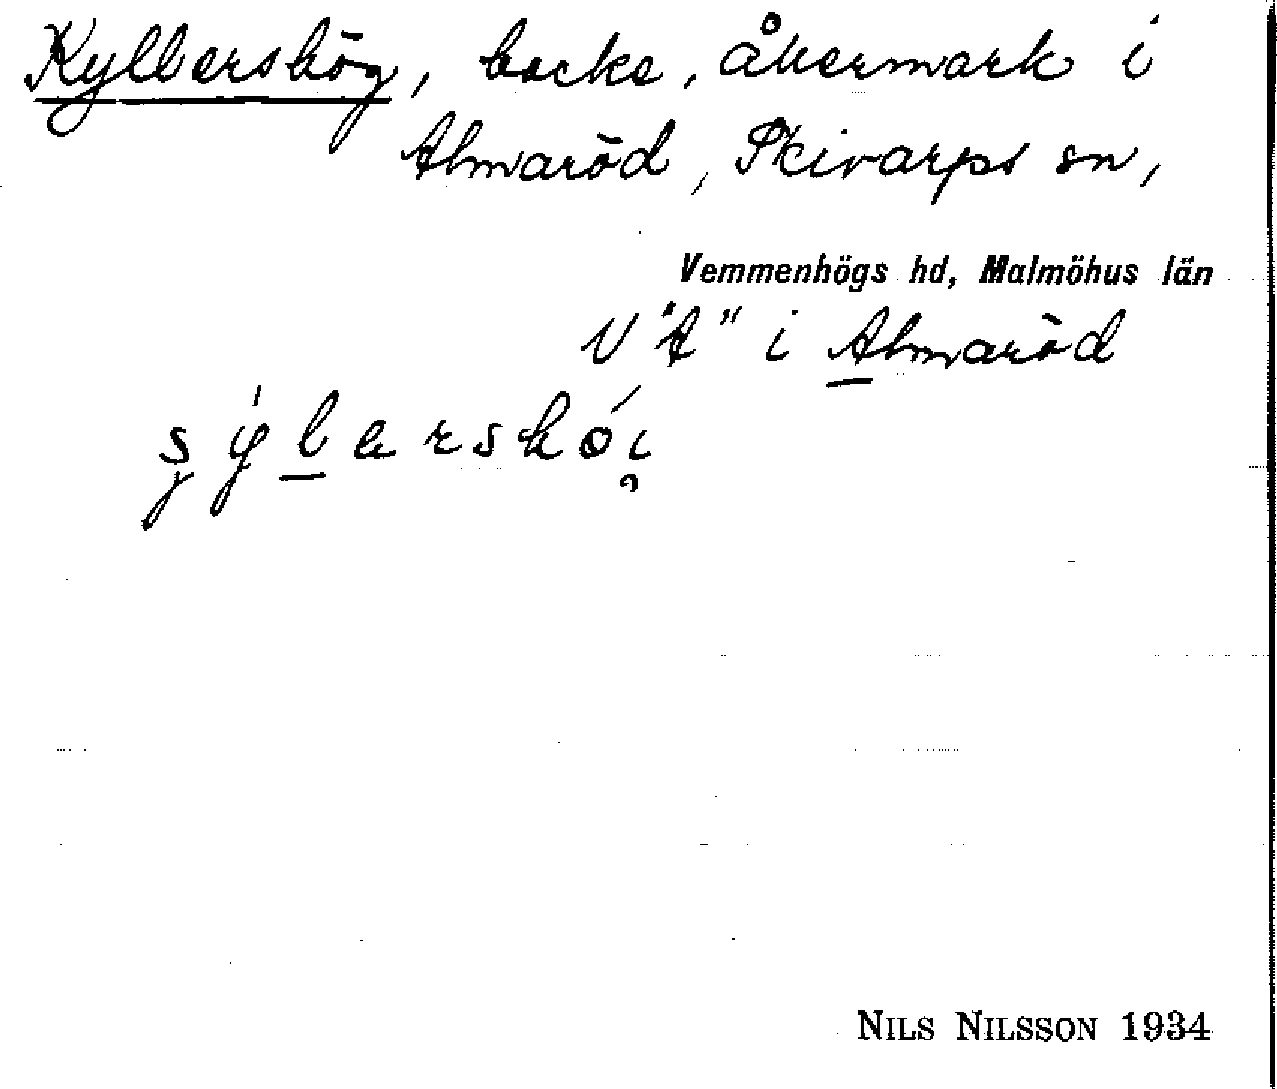 Kyllershög, backe, åkermark i
Almaröd, Skivarps sn,
Vemmenhögs hd, Malmöhus län
V "A" i Almaröd
NILS NILSSON 1934